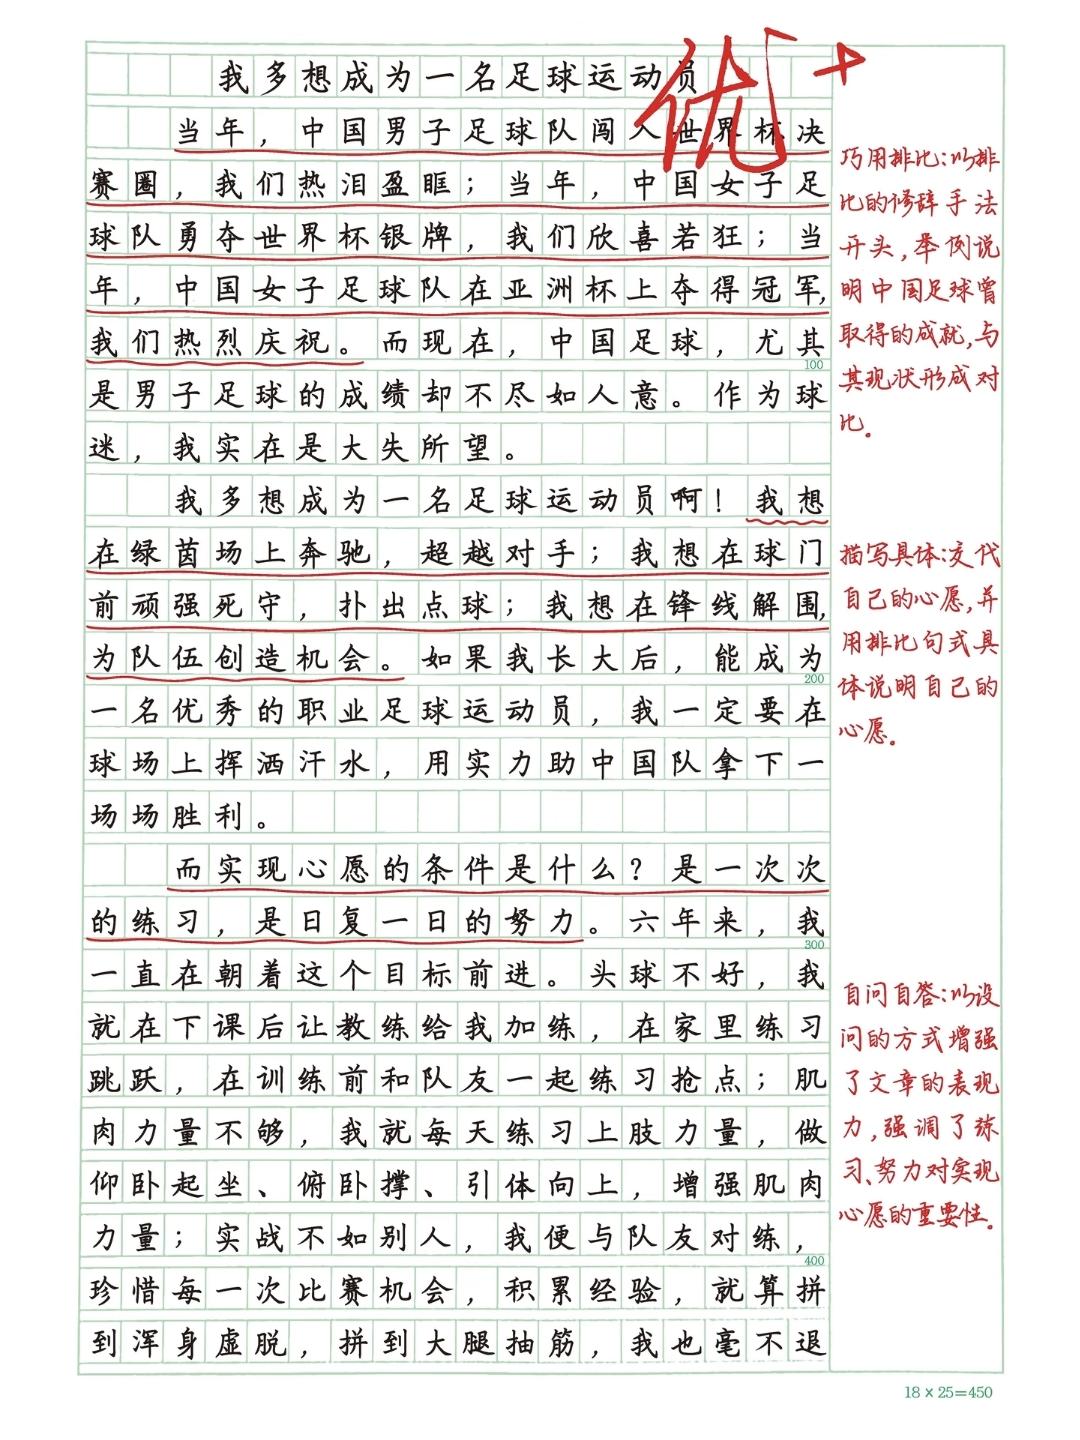 我多想成为一名足球运动员
优+
当年，中国男子足球队闯入世界杯决
赛圈，我们热泪盈眶；当年，中国女子足
球队勇夺世界杯银牌，我们欣喜若狂；当
年，中国女子足球队在亚洲杯上夺得冠军，
我们热烈庆祝。而现在，中国足球，尤其
100
是男子足球的成绩却不尽如人意。作为球
迷，我实在是大失所望。
我多想成为一名足球运动员啊！我想
在绿茵场上奔驰，超越对手；我想在球门
前顽强死守，扑出点球；我想在锋线解围，
为队伍创造机会。如果我长大后，能成为
200
一名优秀的职业足球运动员，我一定要在
球场上挥洒汗水，用实力助中国队拿下一
场场胜利。
而实现心愿的条件是什么？是一次次
的练习，是日复一日的努力。六年来，我
300
一直在朝着这个目标前进。头球不好，我
就在下课后让教练给我加练，在家里练习
跳跃，在训练前和队友一起练习抢点；肌
肉力量不够，我就每天练习上肢力量，做
仰卧起坐、俯卧撑、引体向上，增强肌肉
力量；实战不如别人，我便与队友对练，
400
珍惜每一次比赛机会，积累经验，就算拼
到浑身虚脱，拼到大腿抽筋，我也毫不退
巧用排比：以排
比的修辞手法
开头，举例说
明中国足球曾
取得的成就，与
其现状形成对
比。
描写具体：交代
自己的心愿，并
用排比句式具
体说明自己的
心愿。
自问自答：以设
问的方式增强
了文章的表现
力，强调了练
习、努力对实现
心愿的重要性。
18×25=450